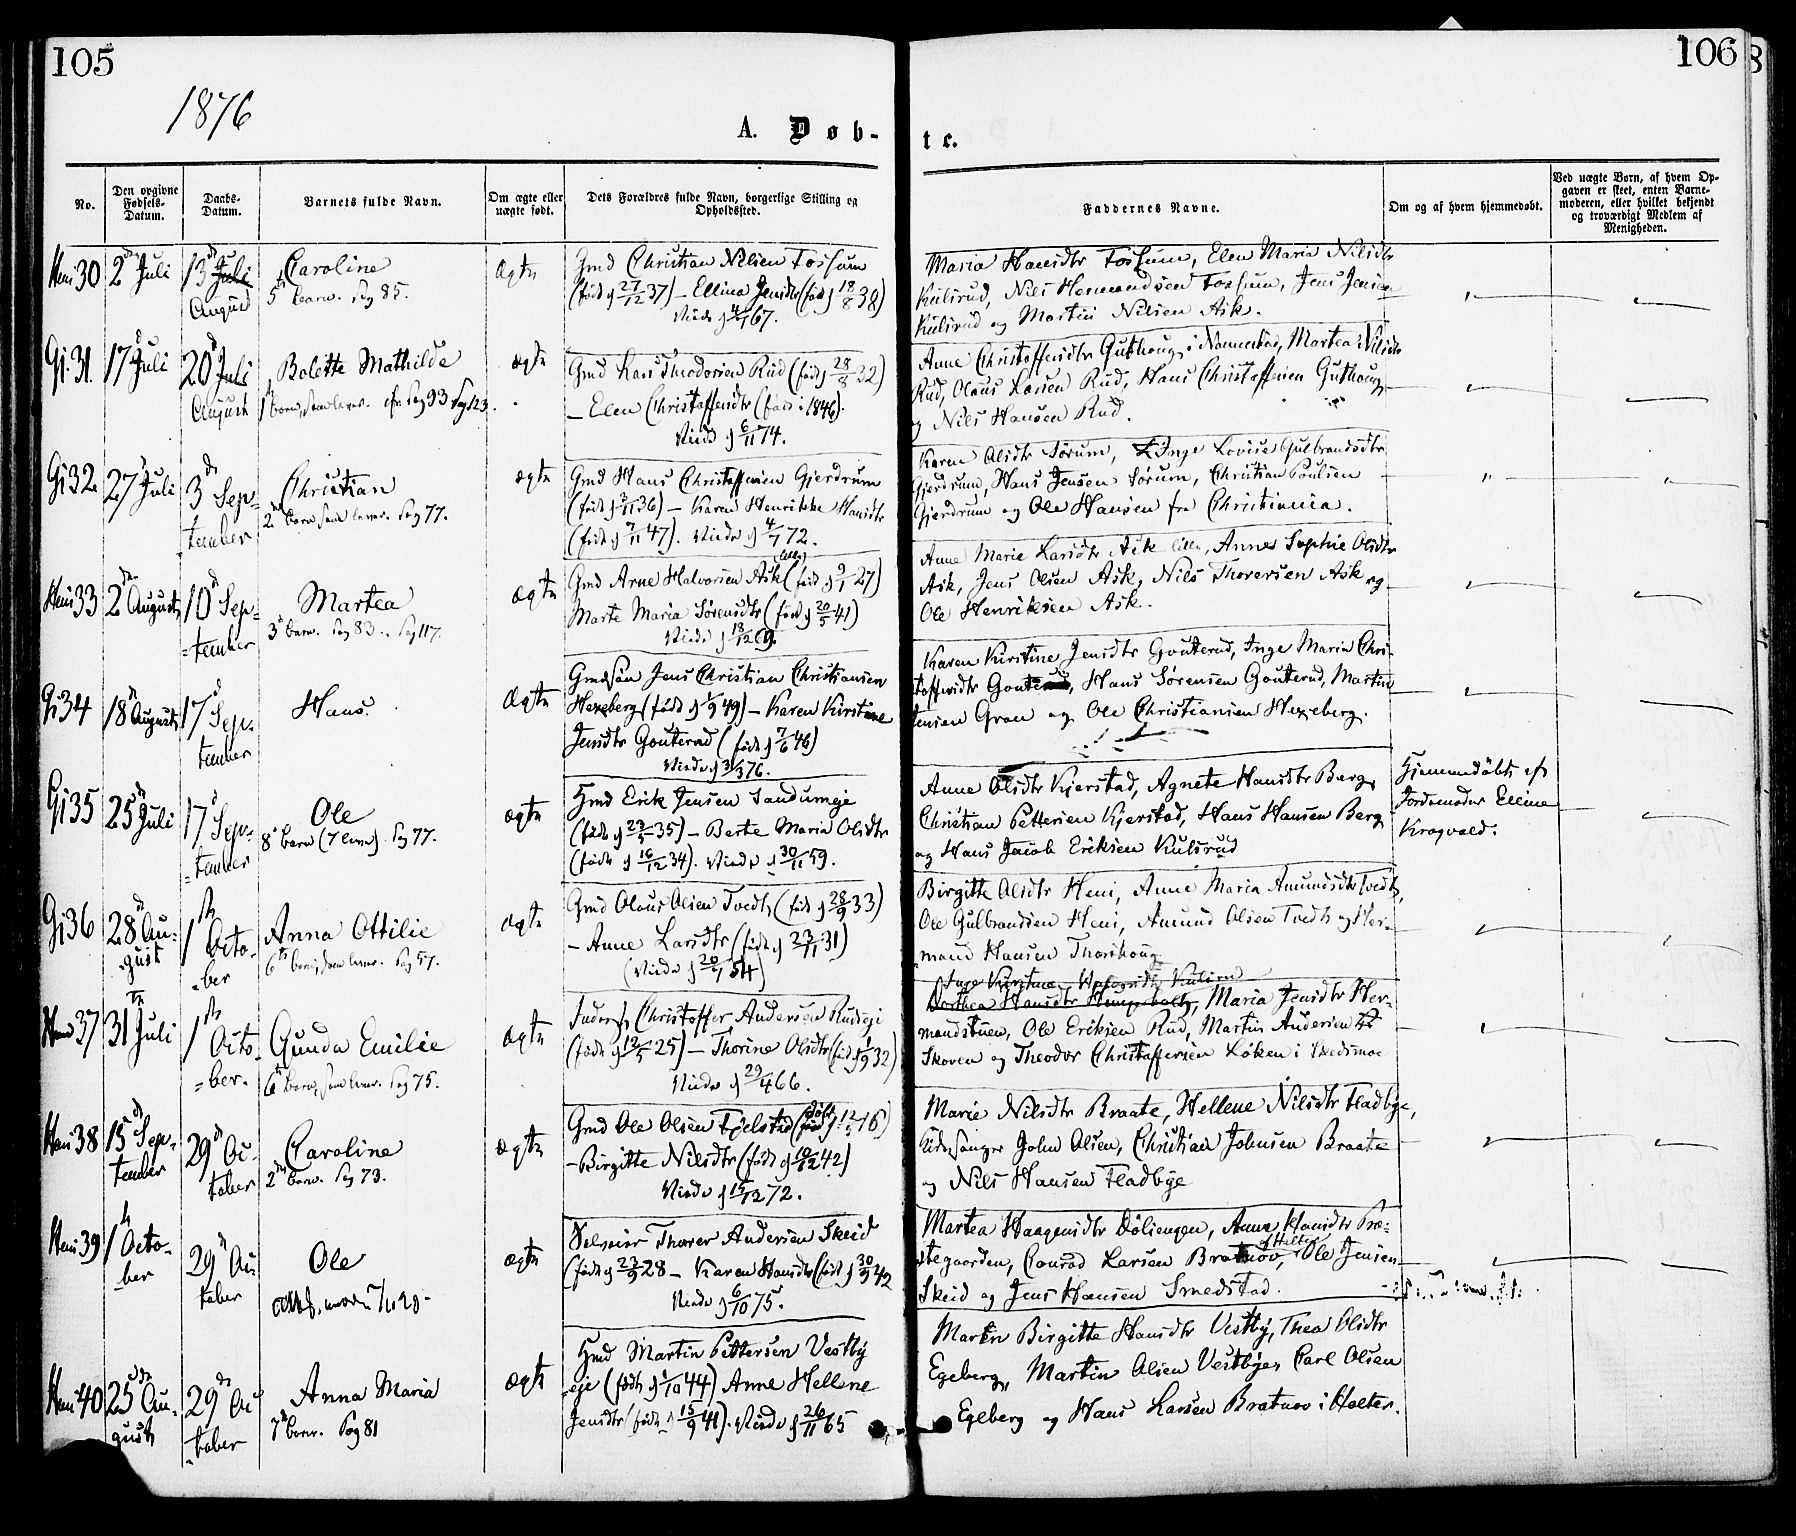 105
106
1876
A. Døb-
te.
No.
Den opgivne Fødsels-Datum.
Daabs-Datum.
Barnets fulde Navn.
Om ægte eller uægte født.
Dets Forældres fulde Navn, borgerlige Stilling og Opholdssted.
Faddernes Navne.
Om og af hvem hjemmedøbt.
Ved uægte Børn, af hvem Opgaven er skeet, enten Barnemoderen, eller hvilket bekjendt og troværdigt Medlem af Menigheden.
30
2 Juli
13 Juli
August
Caroline
5 barn. Pag 85.
Ægte
Gmd Christian Nilsen Fossum
(født d 27/12 37) – Ellina Jensdtr (født d 18/8 38)
Viede d 67.
Maria Hansdtr Fossum, Elen Maria Nilsdtr
Kulsrud, Nils Hermandsen Fossum, Jens Jensen
Kulsrud og Martin Nilsen Ask.
Gj. 31.
17 Juli
20 Juli
August
Bolette Mathilde
Pag 93 Pag 123.
ægte
Gmd Lars Rud (født d 28/8 32)
– Elen Christoffersdtr (født i 1846).
Viede d 6/11 74.
Anne Christoffersdtr Guthoug i Nannestad, Martea Nilsdtr
Rud, Olaus Larsen Rud, Hans Christoffersen Guthoug
og Nils Hansen Rud.
Gj 32
27 Juli
3 Sep-
tember
Christian
2 barn, Pag 77.
ægte
Gmd Hans Christoffersen Gjerdrum
36) – Karen Henrikke Hansdtr
(født d 7/11 47). Viede d 4/1 72.
Karen Olsdtr Sørum, Inge Lovise Gulbrandsdtr
Gjerdrum, Hans Jensen Sørum, Christian Poulsen
Gjerdrum og Ole Hansen fra Christiania.
33
2 August
10 Sep-
tember
Martea
3 barn. Pag 83. Pag 117.
ægte
Gmd Arne Halvorsen Ask (født d 9/1 27)
Marte Maria Sørensdtr (født d 20/5 41)
Viede d 18/12 69.
Anne Marie Larsdtr Ask lille, Annes Sophie Olsdtr
Ask, Jens Olsen Ask, Nils Thoresen Ask og
Ole Henriksen Ask.
Gj 34
18 August
17 Sep-
tember
Hans.
Ægte
Gmdsøn Jens Christian Christiansen
Hexeberg (født d 1/9 49) – Karen Kirstine
Jensdtr Gouterud (født d 7/6 46)
Viede d 3/3 76.
Karen Kirstine Jensdtr Gouterud, Inge Maria Chri-
stoffersdtr Gouterud, Hans Sørensen Gouterud, Martin
Jensen Gran og Ole Christiansen Hexeberg.
Gj 35
25 Juli
17 Sep-
tember
Ole
8 barn (7 lever). Pag 77.
ægte
Hmd Erik Jensen Sandumeje
(født d 23/5 35) – Berte Maria Olsdtr
(født d 16/12 34). Viede d 30/11 59.
Anne Olsdtr Kjerstad, Agnete Hansdtr Berg,
Christian Pettersen Kjerstad, Hans Hansen Berg
og Hans Jacob Eriksen Kulsrud
Hjemmedøbt af
Jordemoder Elline
Krogvold.
Gj 36
28 Au-
gust
1 Octo-
ber
Anna Ottilie
6 barn, Pag 57.
ægte
Gmd Olaus Olsen Tvedt (født d 28/9 33)
– Anne Larsdtr (født d 23/11 31)
(Viede d 20/7 54)
Birgitte Olsdtr Heni, Anne Maria Amundsdtr Tvedt,
Ole Gulbrandsen Heni, Amund Olsen Tvedt og Her-
mand Hansen Thorshoug
37
31 Juli
1 Octo-
ber.
Gunda Emilie
6 barn, Pag 75.
ægte
Christoffer Andersen Rudseje
(født d 12/5 25) – Thorine Olsdtr (født d 1/9 32)
Viede d 29/4 66.
Inge Kirstine Kulsrud
Dorthea Hansdtr, Maria Jensdtr Her-
mandstuen, Ole Eriksen Rud, Martin Andersen
Skoven og Theodor Christoffersen Løken i Skedsmoe
38
15 Sep-
tember
29 Oc-
tober
Caroline
2 barn. Pag 73.
ægte
Gmd Ole Olsen Fjelstad (døbt d 12/5 16)
– Birgitte Nilsdtr (født d 10/12 42)
Viede d 15/12 72.
Marie Nilsdtr Braate, Hellene Nilsdtr Fladbye,
Kirkesanger John Olsen, Christian Johnsen Braate
og Nils Hansen Fladbye
39
1 Octo-
ber
29 Oc
tober
Ole
ægte
Selveier Thorer Andersen Skeid
(født d 23/9 28 – Karen Hansdtr (født d 30/9 42
Viede d 6/10 75.
Martea Haagensdtr Døliengen, Anna Hansdtr Præ-
stegaarden, Conrad Larsen Bratnov, af Holter, Ole Jensen
Skeid og Jens Hansen Smedstad.
40
25 Au-
gust
29 Oc
tober
Anna Maria
7 barn. Pag 81
ægte
Hmd Martin Pettersen Vestby
eje (født d 1/10 44) Anne Hellene
Jensdtr (født d 15/9 41). Viede d 26/11 65
Maren Birgitte Hansdtr Vestby, Thea Olsdtr
Egeberg, Martin Olsen Vestbye, Carl Olsen
Egeberg og Hans Larsen Bratnov i Holter.